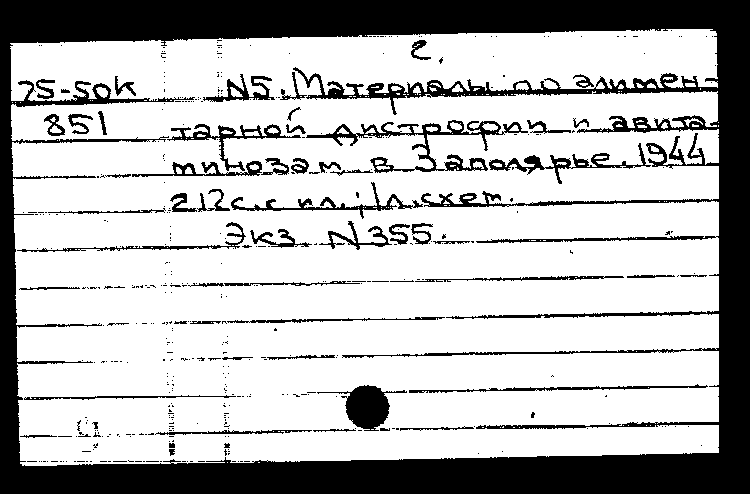 2.
75-50к N5. Материалы по алимен-
851 тарной дистрофии и авита-
минозам в Заполярье. 1944
212с. с ил.; 1л. схем.
Экз. N355.